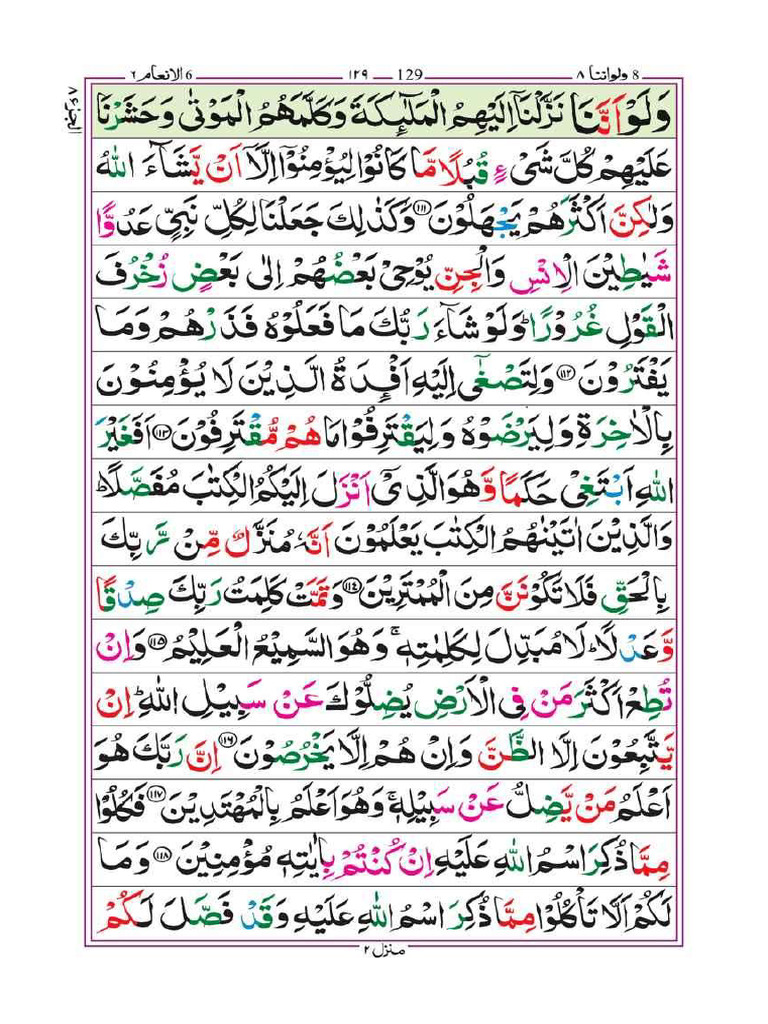 8 ولواننا ٨
129 — ١٢٩
6 الانعام ٦
الجزء ٨
وَلَوْ اَنَّنَا نَزَّلْنَاۤ اِلَيْهِمُ الْمَلٰٓئِكَةَ وَكَلَّمَهُمُ الْمَوْتٰى وَحَشَرْنَا
عَلَيْهِمْ كُلَّ شَىْءٍ قُبُلًا مَّا كَانُوْا لِيُؤْمِنُوْۤا اِلَّاۤ اَنْ يَّشَآءَ اللهُ
وَلٰكِنَّ اَكْثَرَهُمْ يَجْهَلُوْنَ ﴿١١١﴾ وَكَذٰلِكَ جَعَلْنَا لِكُلِّ نَبِىٍّ عَدُوًّا
شَيٰطِيْنَ الْاِنْسِ وَالْجِنِّ يُوْحِىْ بَعْضُهُمْ اِلٰى بَعْضٍ زُخْرُفَ
الْقَوْلِ غُرُوْرًا ؕ وَلَوْ شَآءَ رَبُّكَ مَا فَعَلُوْهُ فَذَرْهُمْ وَمَا
يَفْتَرُوْنَ ﴿١١٢﴾ وَلِتَصْغٰۤى اِلَيْهِ اَفْـِٕدَةُ الَّذِيْنَ لَا يُؤْمِنُوْنَ
بِالْاٰخِرَةِ وَلِيَرْضَوْهُ وَلِيَقْتَرِفُوْا مَا هُمْ مُّقْتَرِفُوْنَ ﴿١١٣﴾ اَفَغَيْرَ
اللهِ اَبْتَغِىْ حَكَمًا وَّهُوَ الَّذِىْۤ اَنْزَلَ اِلَيْكُمُ الْكِتٰبَ مُفَصَّلًا ؕ
وَالَّذِيْنَ اٰتَيْنٰهُمُ الْكِتٰبَ يَعْلَمُوْنَ اَنَّهٗ مُنَزَّلٌ مِّنْ رَّبِّكَ
بِالْحَقِّ فَلَا تَكُوْنَنَّ مِنَ الْمُمْتَرِيْنَ ﴿١١٤﴾ وَتَمَّتْ كَلِمَتُ رَبِّكَ صِدْقًا
وَّعَدْلًا ؕ لَا مُبَدِّلَ لِكَلِمٰتِهٖ ۚ وَهُوَ السَّمِيْعُ الْعَلِيْمُ ﴿١١٥﴾ وَاِنْ
تُطِعْ اَكْثَرَ مَنْ فِى الْاَرْضِ يُضِلُّوْكَ عَنْ سَبِيْلِ اللهِ ؕ اِنْ
يَّتَّبِعُوْنَ اِلَّا الظَّنَّ وَاِنْ هُمْ اِلَّا يَخْرُصُوْنَ ﴿١١٦﴾ اِنَّ رَبَّكَ هُوَ
اَعْلَمُ مَنْ يَّضِلُّ عَنْ سَبِيْلِهٖ ۚ وَهُوَ اَعْلَمُ بِالْمُهْتَدِيْنَ ﴿١١٧﴾ فَكُلُوْا
مِمَّا ذُكِرَ اسْمُ اللهِ عَلَيْهِ اِنْ كُنْتُمْ بِاٰيٰتِهٖ مُؤْمِنِيْنَ ﴿١١٨﴾ وَمَا
لَكُمْ اَلَّا تَاْكُلُوْا مِمَّا ذُكِرَ اسْمُ اللهِ عَلَيْهِ وَقَدْ فَصَّلَ لَكُمْ
منزل ٢